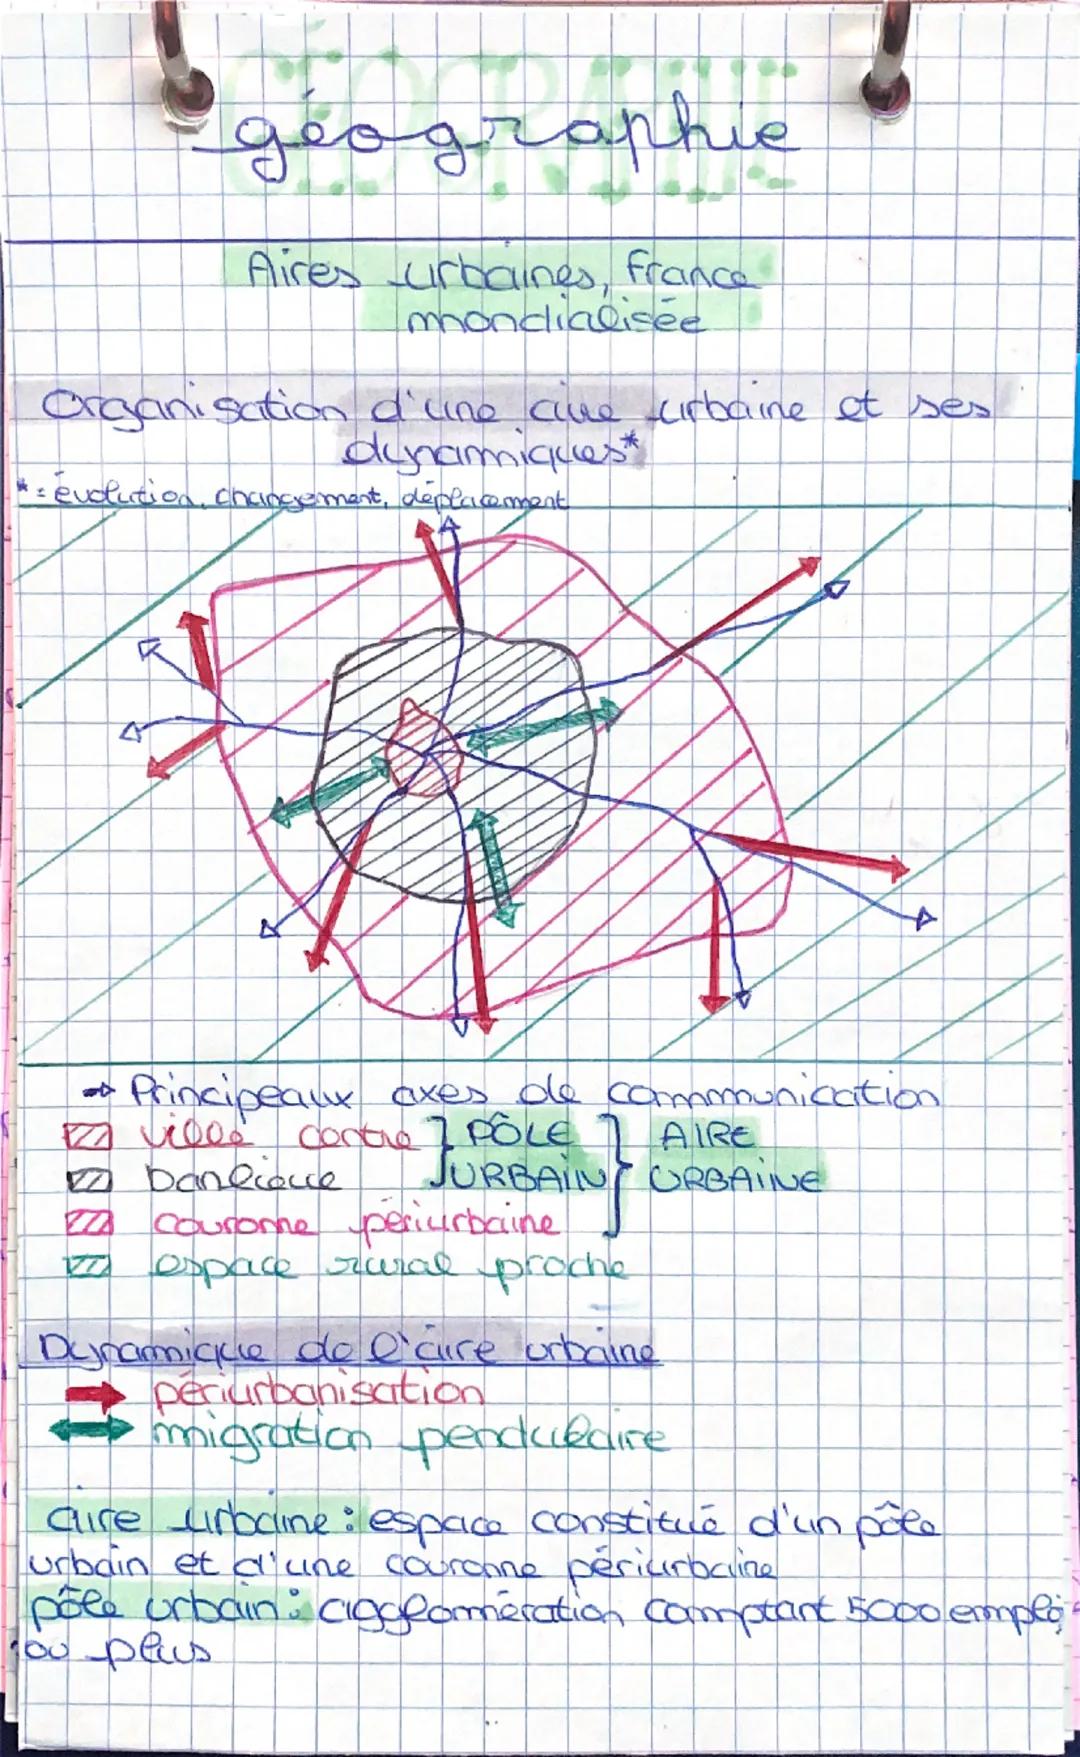 GÉOGRAPHIE
géographie
Aires urbaines, France
mondialisée
Organisation d'une aire urbaine et ses
dynamiques*
* = évolution, changement, déplacement
→ Principeaux axes de communication
ville centre } PÔLE } AIRE
banlieue URBAIN URBAINE
couronne périurbaine
espace rural proche
Dynamique de l'aire urbaine
périurbanisation
migration pendulaire
aire urbaine : espace constitué d'un pôle
urbain et d'une couronne périurbaine
pôle urbain : agglomération comptant 5000 emploi
ou plus